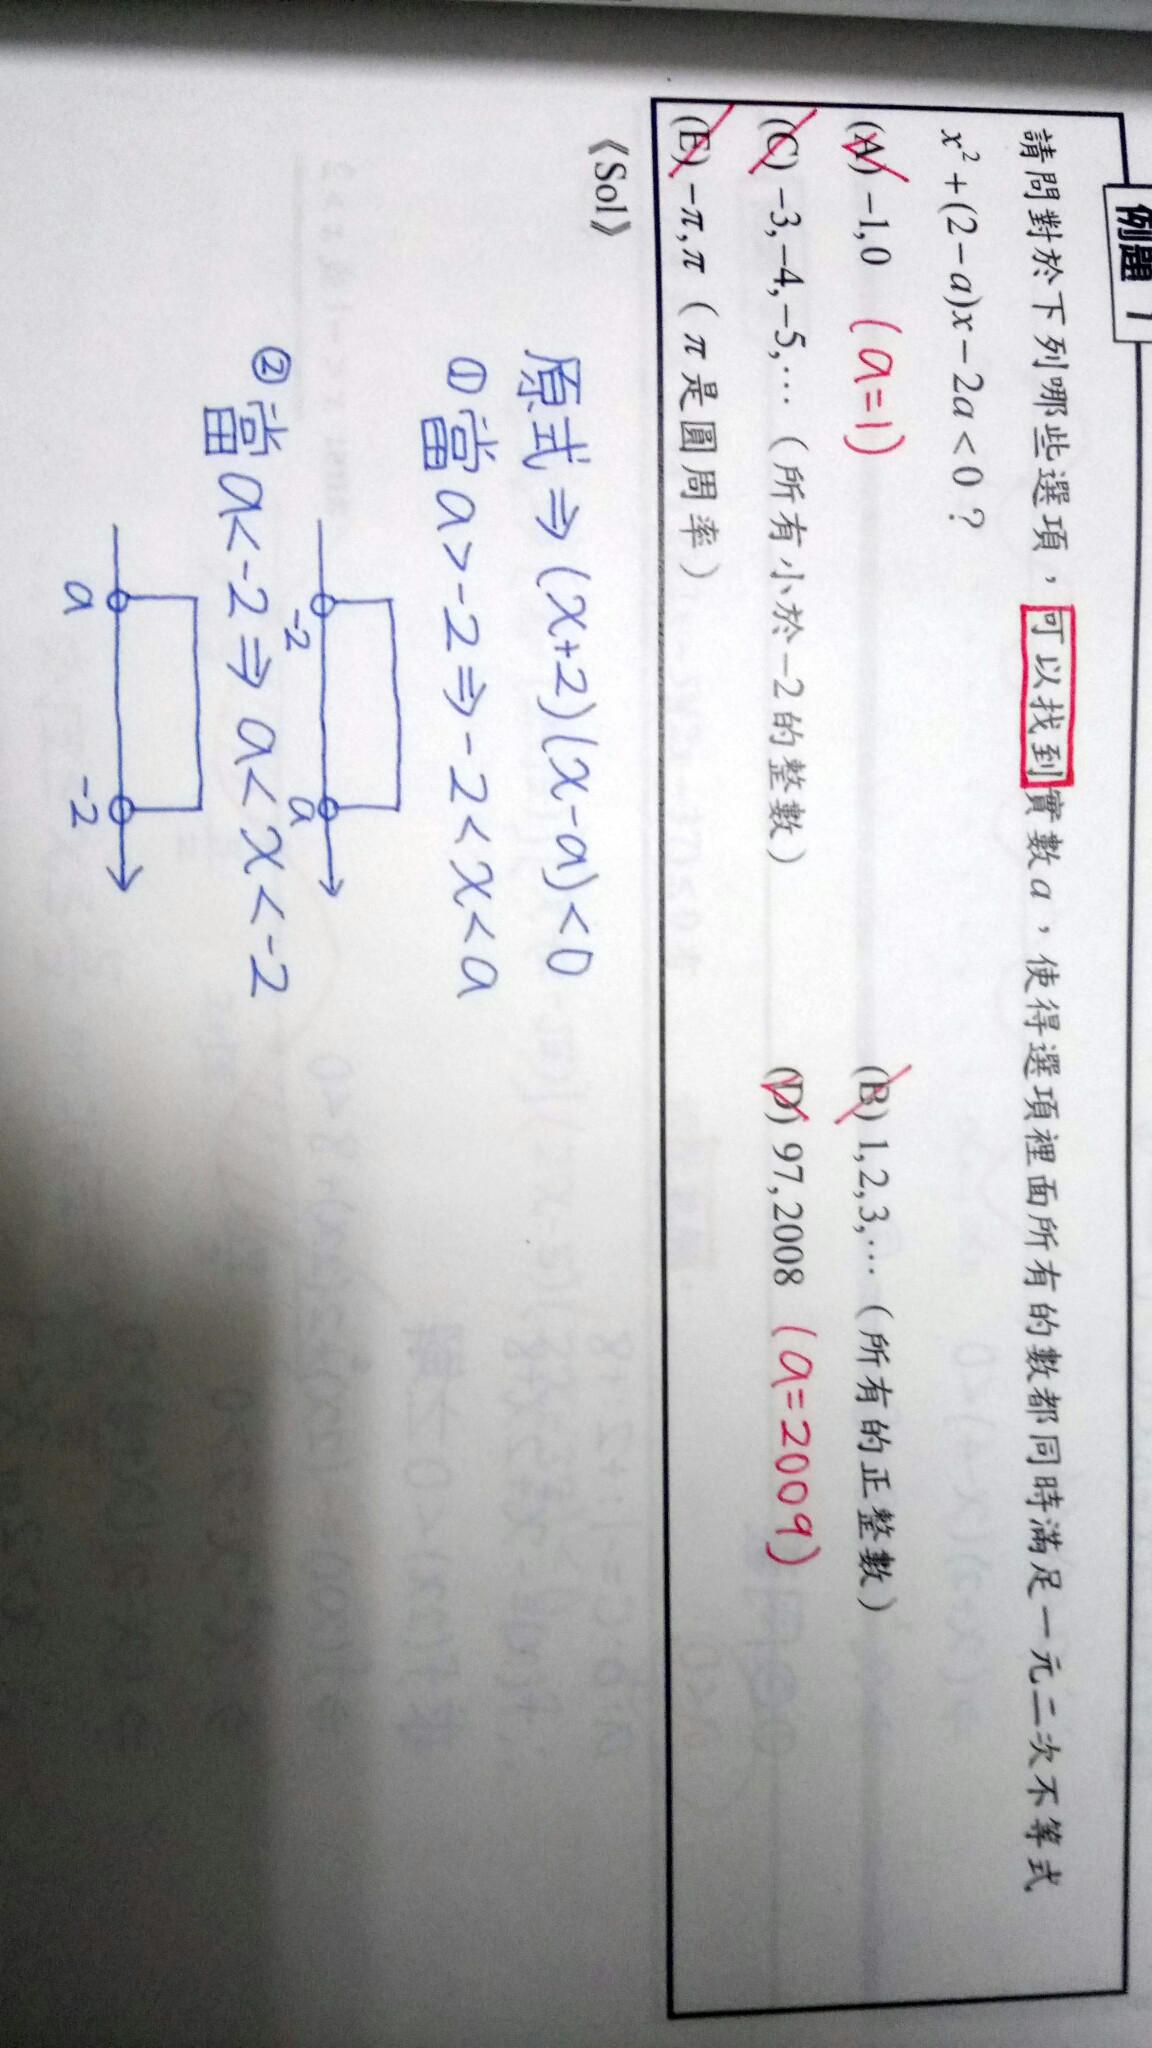 例題 1
請問對於下列哪些選項，可以找到實數a，使得選項裡面所有的數都同時滿足一元二次不等式
x²+(2-a)x-2a<0？
(A) -1,0 (a=1) (B) 1,2,3,…（所有的正整數）
(C) -3,-4,-5,…（所有小於-2的整數） (D) 97,2008 (a=2009)
(E) -π,π（π是圓周率）
《Sol》
原式⇒(x+2)(x-a)<0
①當a>-2⇒-2<x<a
-2 a
②當a<-2⇒a<x<-2
a -2